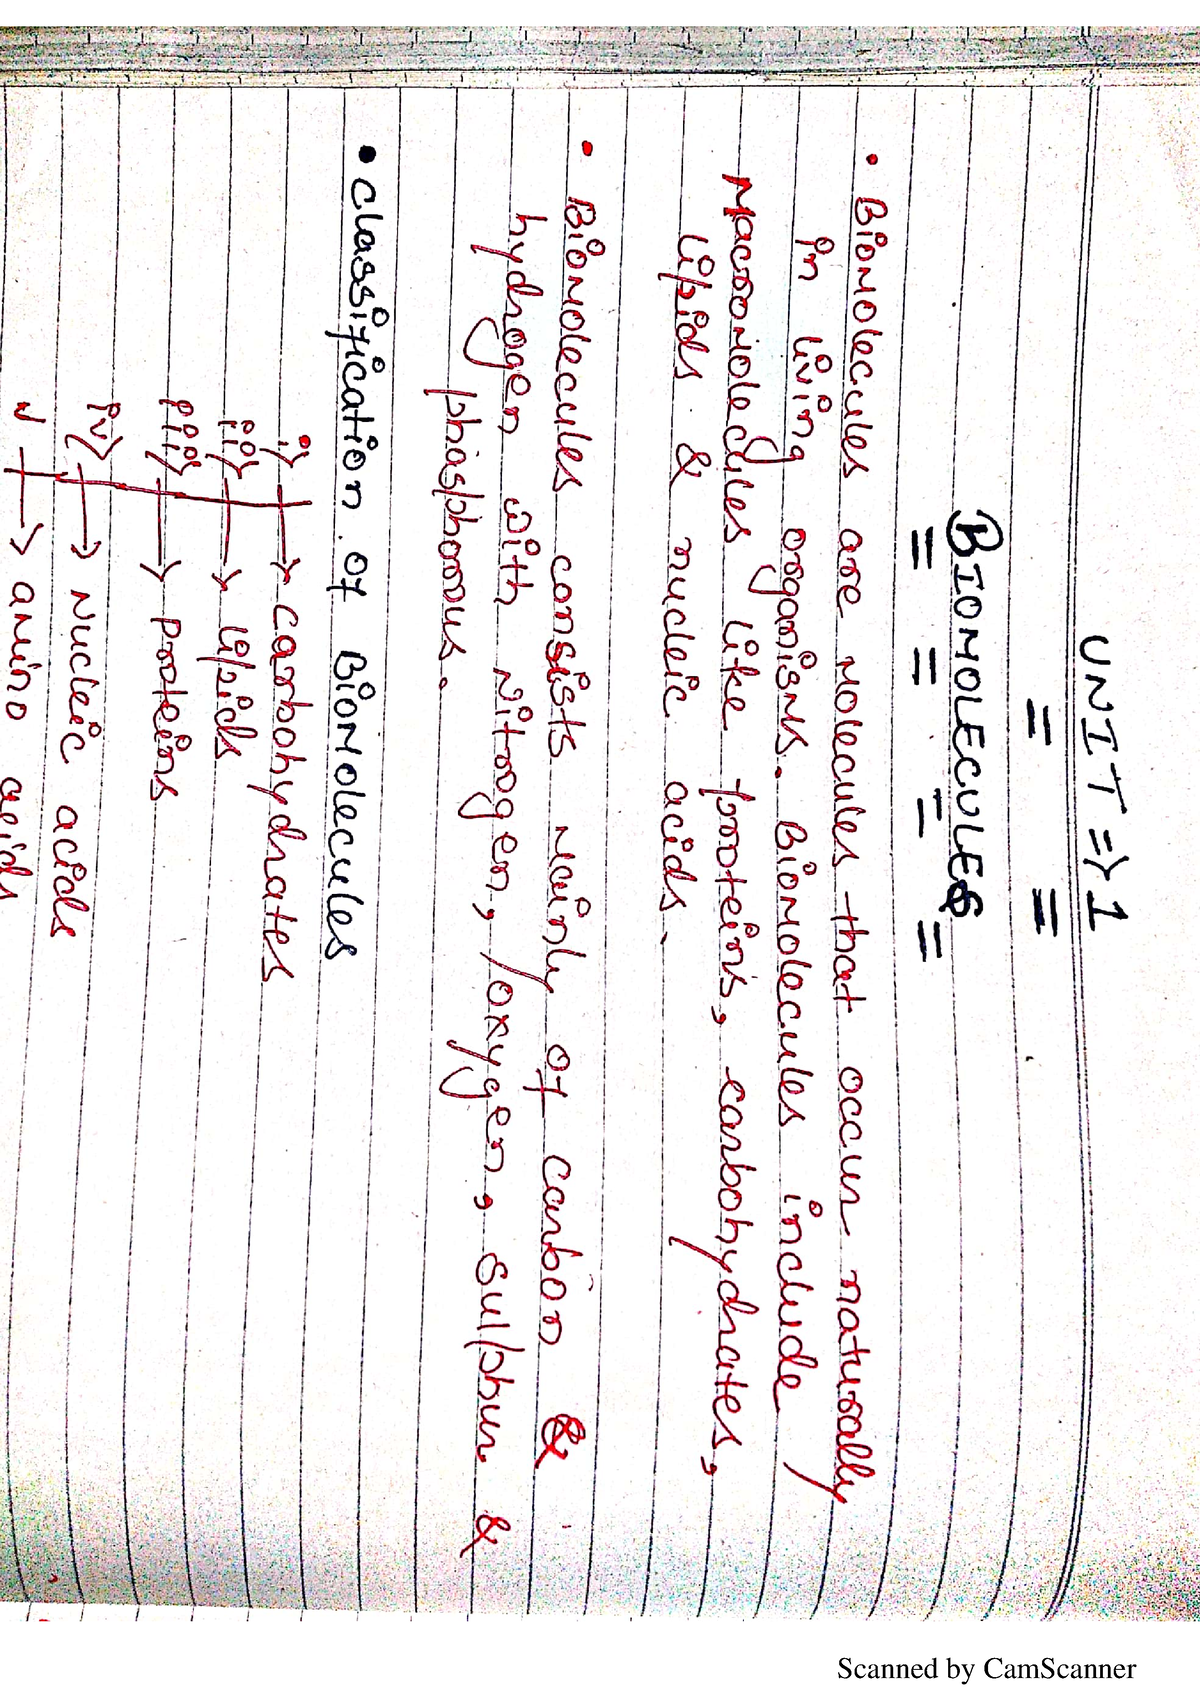 UNIT => 1
BIOMOLECULES
• Biomolecules are molecules that occur naturally
in living organisms. Biomolecules include
Macromolecules like proteins, carbohydrates,
lipids & nucleic acids.
• Biomolecules consists mainly of carbon &
hydrogen with Nitrogen, oxygen, sulphur &
phosphorous.
• Classification of Biomolecules
i) → carbohydrates
ii) → lipids
iii) → proteins
iv) → Nucleic acids
v → amino acids
Scanned by CamScanner